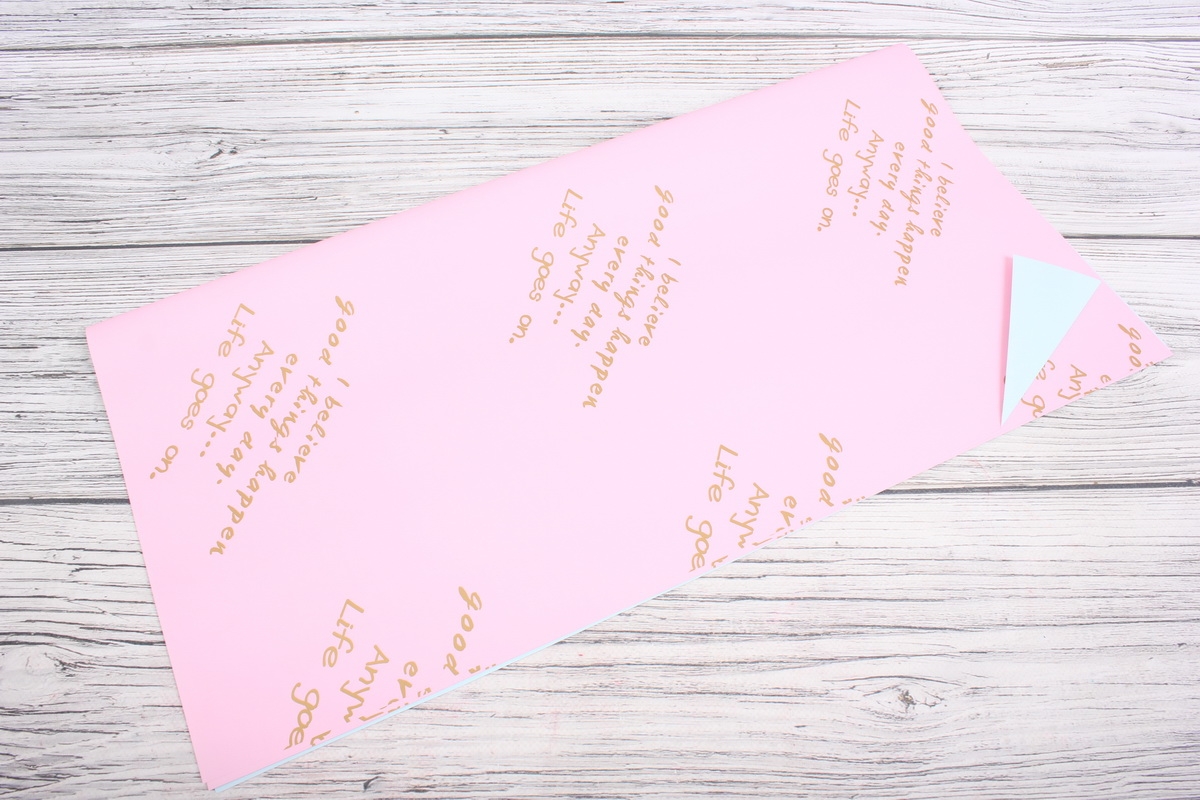 I believe
good things happen
every day.
Anyway...
Life goes on.
I believe
good things happen
every day.
Anyway...
Life goes on.
I believe
good things happen
every day.
Anyway...
Life goes on.
good
ev
Anyw
Life goe
good
ev
Anyw
Life goe
goo
e
Any
g